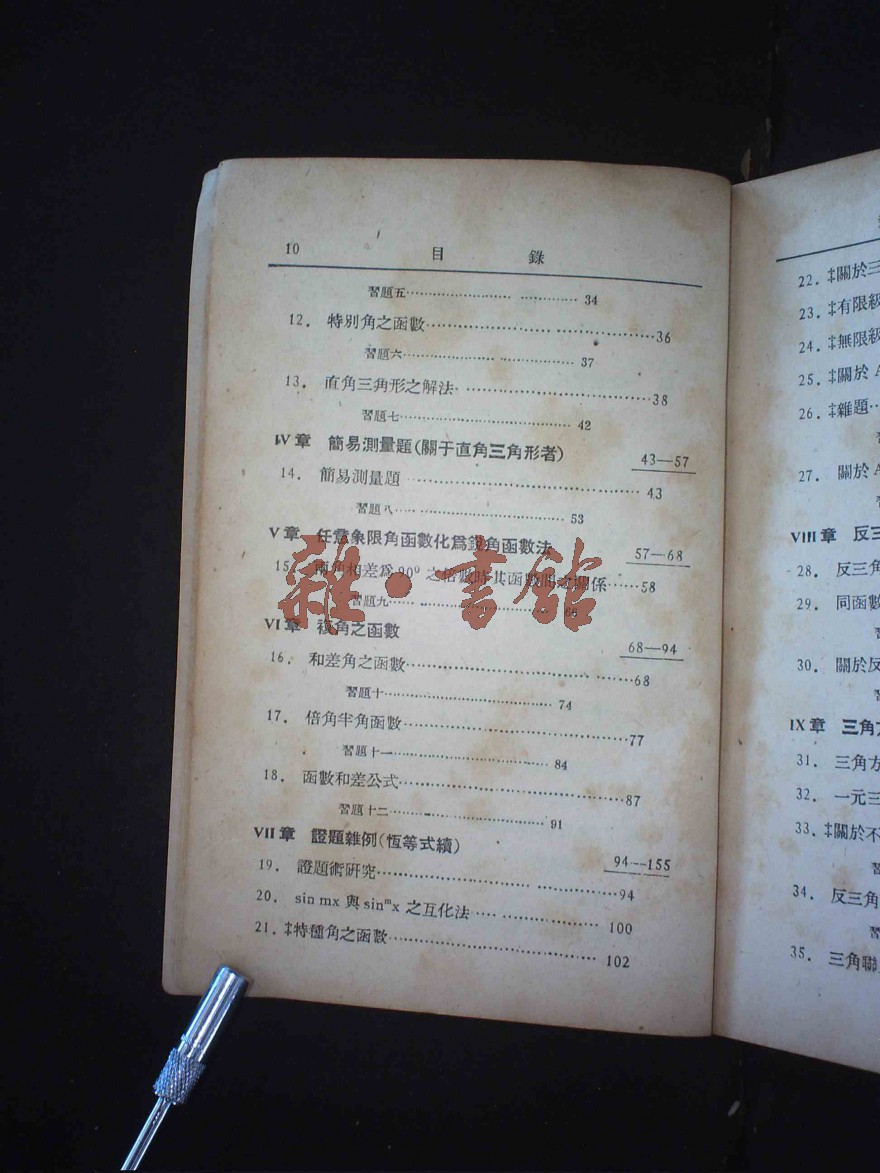 10 目 錄
習題五 34
12. 特別角之函數 36
習題六 37
13. 直角三角形之解法 38
習題七 42
IV 章 簡易測量題(關于直角三角形者) 43—57
14. 簡易測量題 43
習題八 53
V 章 任意象限角函數化爲銳角函數法 57—68
15. 兩角相差爲 90° 之倍數時其函數間之關係 58
習題九 66
VI 章 複角之函數 68—94
16. 和差角之函數 68
習題十 74
17. 倍角半角函數 77
習題十一 84
18. 函數和差公式 87
習題十二 91
VII 章 證題雜例(恆等式續) 94—155
19. 證題術硏究 94
20. sin mx 與 sinᵐx 之互化法 100
21. ‡特種角之函數 102
雜·書館
22. ‡關於三
23. ‡有限級
24. ‡無限級
25. ‡關於 A
26. ‡雜題
27. 關於 A
VIII 章 反三
28. 反三角
29. 同函數
30. 關於反
IX 章 三角方
31. 三角方
32. 一元三
33. ‡關於不
34. 反三角
35. 三角聯